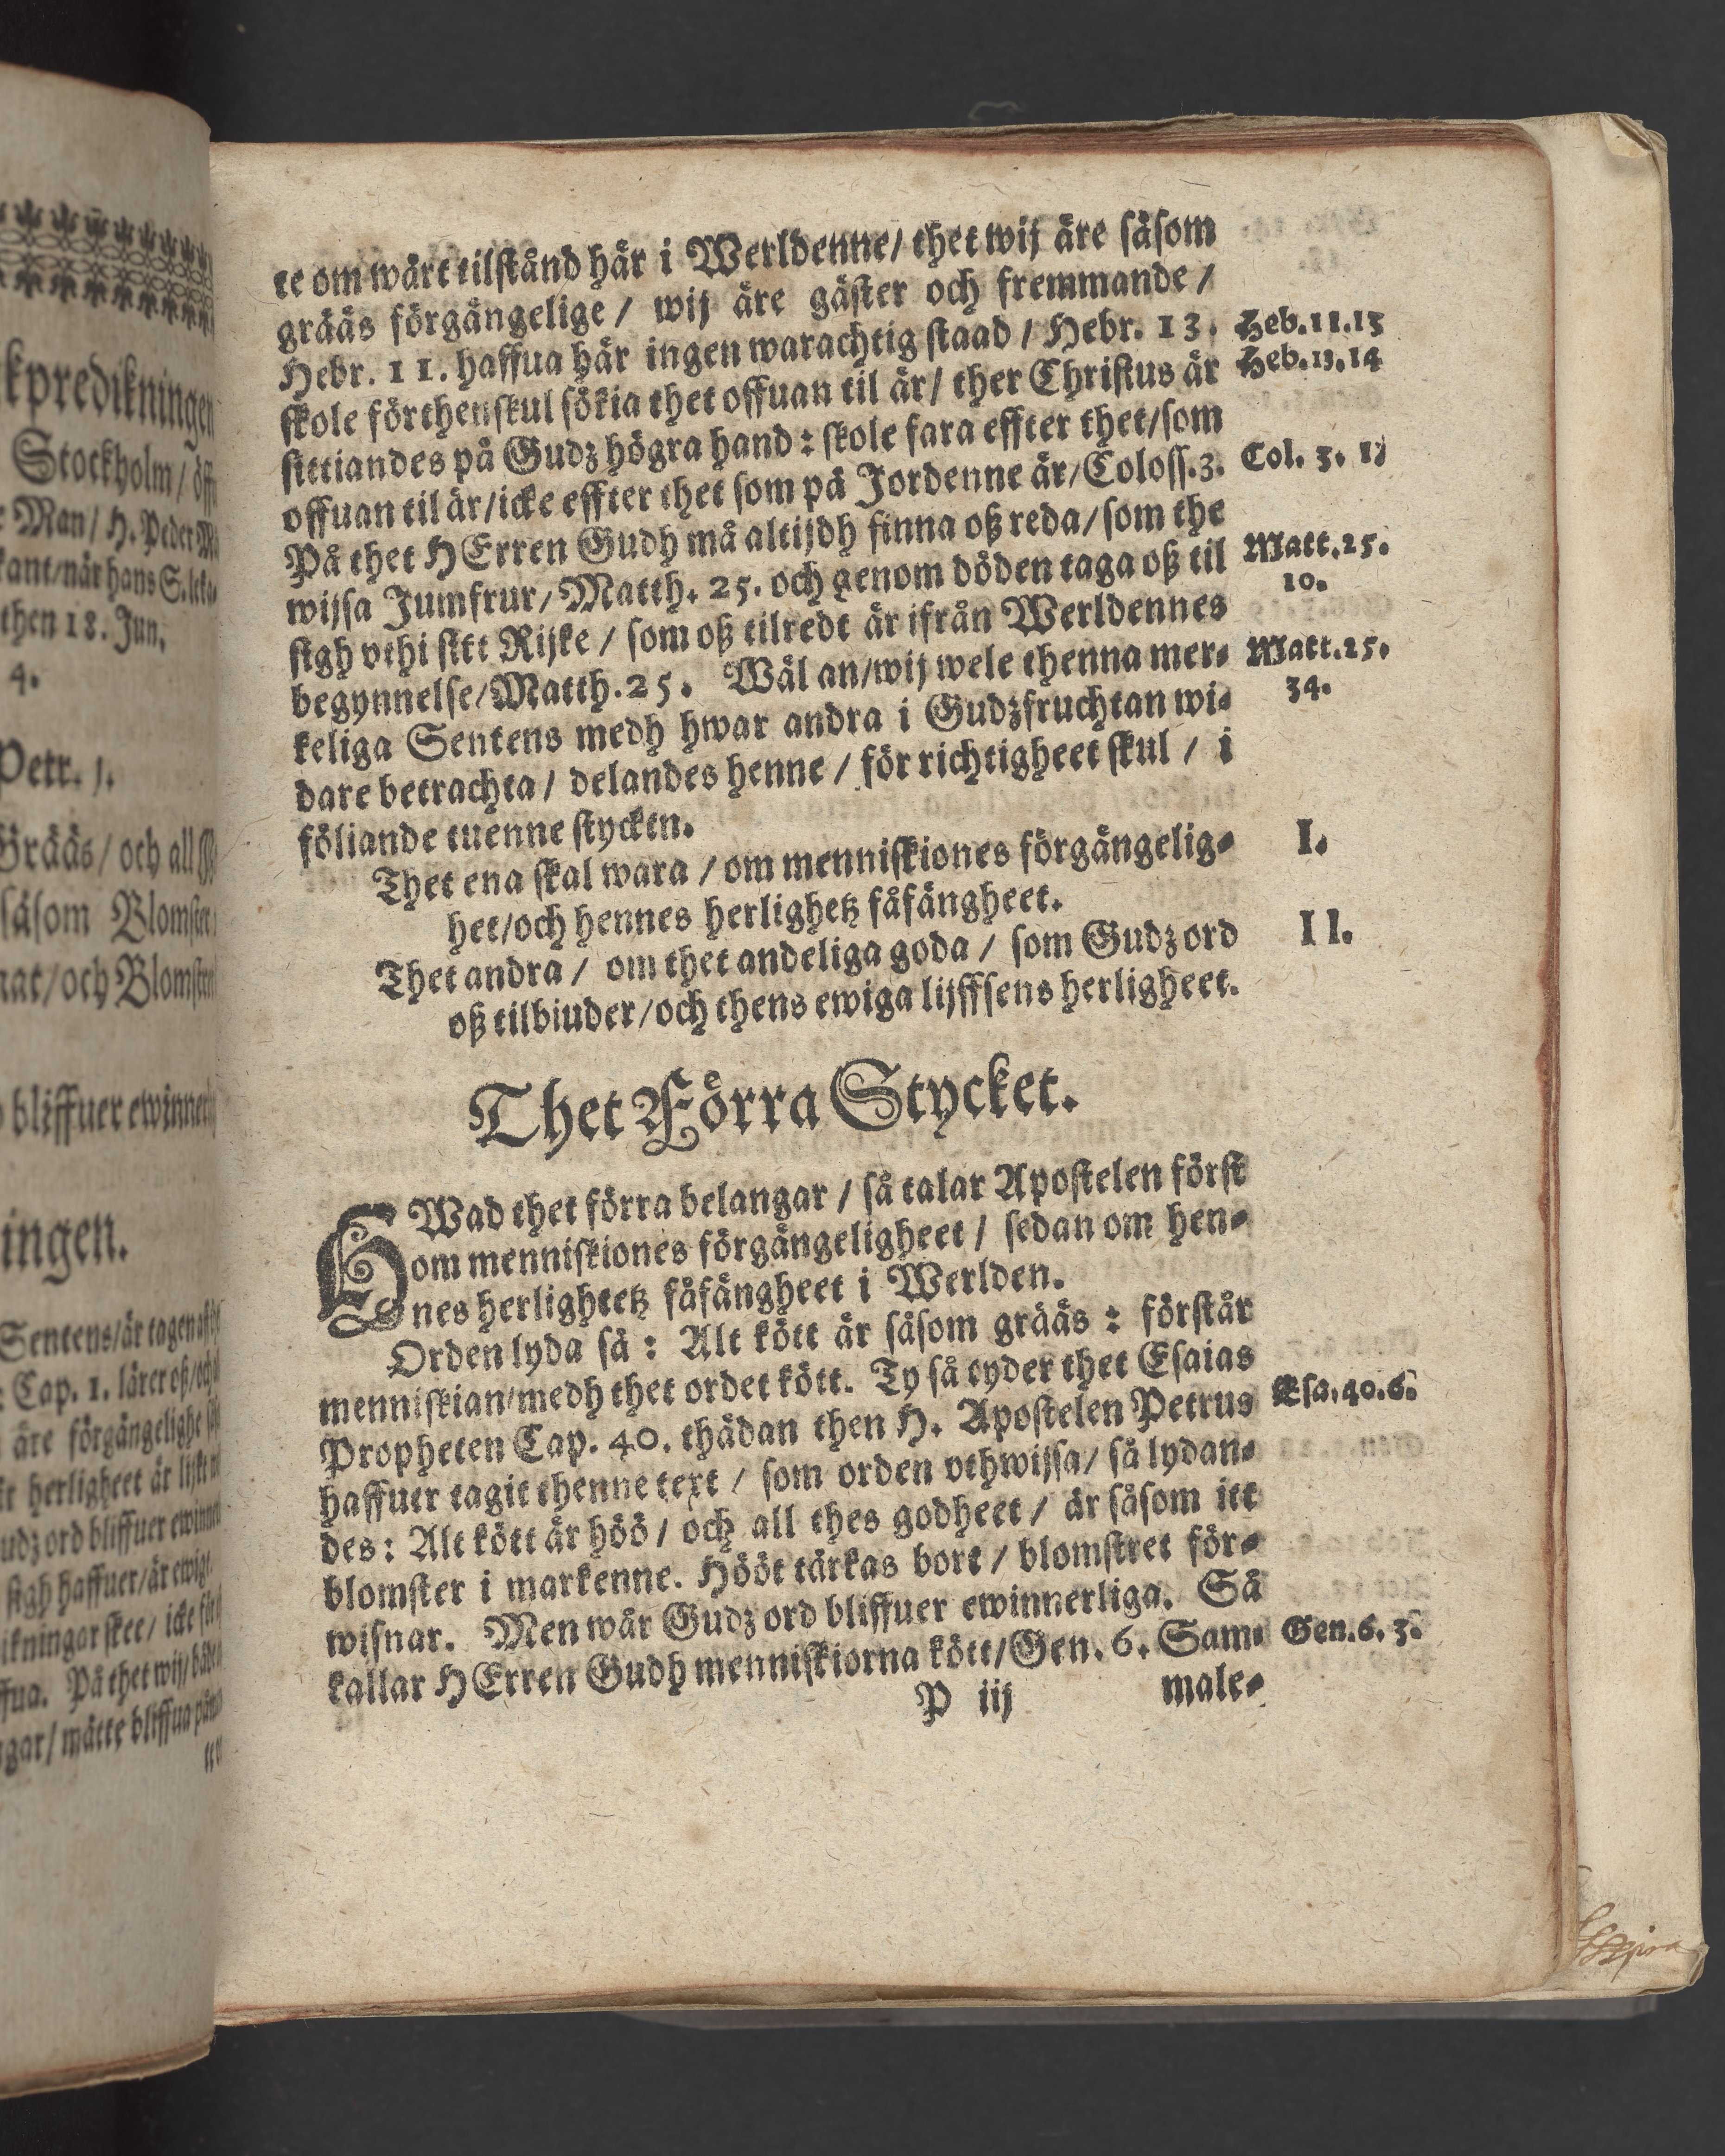 kpredikningen
Stockholm / öff
Man / H. Peder
kant/när hans S.
then 18. Jun.
4.
Petr. 1.
Grääs / och all
såsom Blomster
nat/och Blomstret
bliffuer ewinner
ingen.
Sentens/är tagen
Cap. 1. lärer oß/och
äre förgängelighe
herligheet är lijkt
udz ord bliffuer ewinner
sigh haffuer/är ewigt.
ikningar skee/ icke
ffua. På thet wij/
gar/ måtte bliffua
te om wårt tilstånd här i Werldenne/ thet wij äre såsom
grääs förgängelige / wij äre gäster och fremmande /
Hebr. 11. haffua här ingen warachtig staad / Hebr. 13. Heb.11.13
skole förthenskul sökia thet offuan til är/ ther Christus är Heb.13.14
sittiandes på Gudz högra hand: skole fara effter thet/som
offuan til är/icke effter thet som på Jordenne är/Coloss.3. Col. 3. 1,
På thet HErren Gudh må altijdh finna oß reda/som the
wijsa Jumfrur/Matth. 25. och genom döden taga oß til Matt.25.
sigh vthi sitt Rijke / som oß tilredt är ifrån Werldennes 10.
begynnelse/Matth.25. Wäl an/wij wele thenna mer- Matt.25.
keliga Sentens medh hwar andra i Gudzfruchtan wi- 34.
dare betrachta/ delandes henne / för richtigheet skul / i
följande tuenne stycken.
Thet ena skal wara / om menniskiones förgängelig- I.
het/och hennes herlighetz fåfängheet.
Thet andra / om thet andeliga goda / som Gudz ord II.
oß tilbiuder/och thens ewiga lijffsens herligheet.
Thet Förra Stycket.
HWad thet förra belangar / så talar Apostelen först
om menniskiones förgängeligheet / sedan om hen-
nes herligheetz fåfängheet i Werlden.
Orden lyda så: Alt kött är såsom grääs: förstår
menniskian/medh thet ordet kött. Ty så tyder thet Esaias
Propheten Cap. 40. thädan then H. Apostelen Petrus Esa.40.6.
haffuer tagit thenne text / som orden vthwijsa/ så lydan-
des: Alt kött är höö / och all thes godheet / är såsom itt
blomster i markenne. Hööt tärkas bort / blomstret för-
wisnar. Men wår Gudz ord bliffuer ewinnerliga. Så
kallar HErren Gudh menniskiorna kött/Gen. 6. Sam- Gen.6. 3.
P iij male-